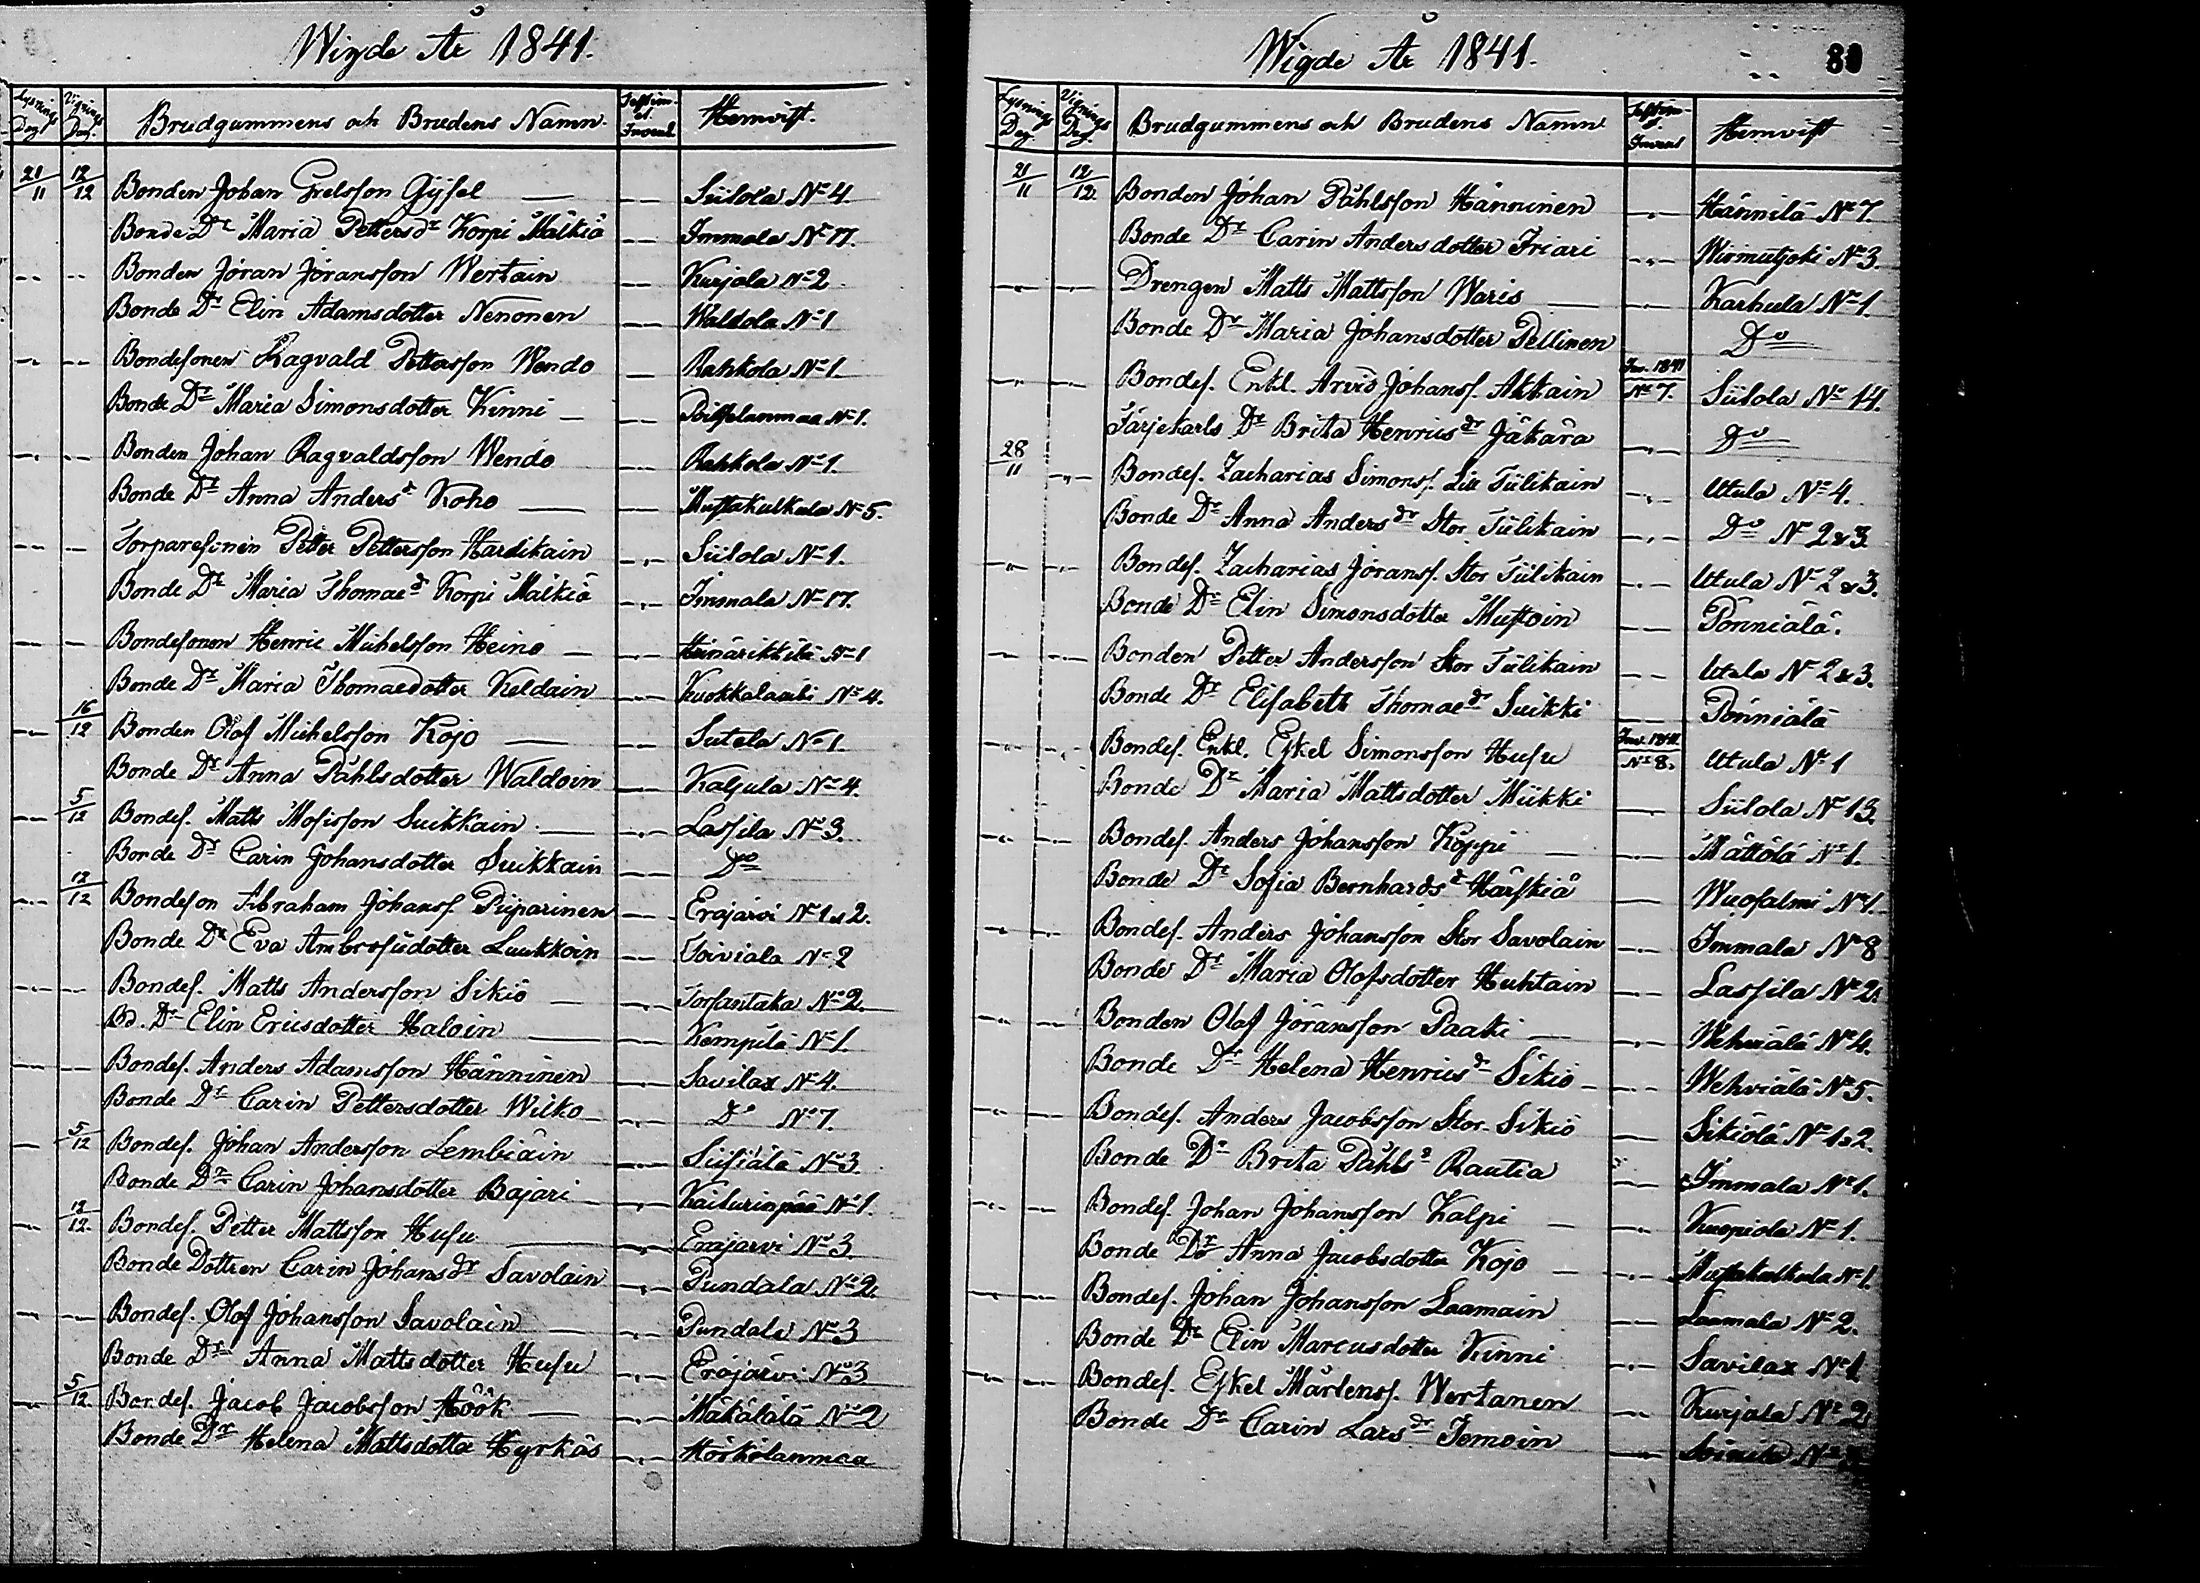 Wigde År 1841.
Lysnings Dag. Vignings Dag. Brudgummens och Brudens Namn. Hemvist.
21/11 12/12 Bonden Johan Grelsson Gijsel — Siilola No 4.
Bonde Dr Maria Pettersdr Korpi Mälkiä — Immola No 17.
Bonden Jöran Jöransson Wertain — Kurjala No 2
Bonde Dr Elin Adamsdotter Nenonen — Waldola No 1
Bondesonen Ragvald Pettersson Wendo — Rahkola No 1
Bonde Dr Maria Simonsdotter Kinni — No 1.
Bonden Johan Ragvaldsson Wendo — Rahkola No 1
Bonde Dr Anna Andersdr Koho — Mustakulkula No 5.
Torparesonen Petter Pettersson Hardikain — Siilola No 1.
Bonde Dr Maria Thomaedr Korpi Mälkiä — Immala No 17.
Bondesonen Henric Michelsson Heino — Heinärikkilä No 1
Bonde Dr Maria Thomaedotter Keldain — Kuokkalambi No 4.
16/12 Bonden Olof Michelsson Kojo — Sutela No 1.
Bonde Dr Anna Påhlsdotter Waldoin — Kaljula No 4.
5/12 Bondes. Matts Mosisson Suikkain — Lassila No 3.
Bonde Dr Carin Johansdotter Suikkain — Do
12/12 Bondeson Abraham Johanss. Piiparinen — Eräjärvi No 1 & 2.
Bonde Dr Eva Ambrosiidotter Luukkoin — Toiviala No 2
Bondes. Matts Andersson Sikiö — Torsantaka No 2.
Bd. Dr Elin Ericsdotter Haloin — Kempilä No 1.
Bondes. Anders Adamsson Hänninen — Savilax No 4.
Bonde Dr Carin Pettersdotter Wilko — Do No 7.
5/12 Bondes. Johan Andersson Lembiäin — Siisiälä No 3.
Bonde Dr Carin Johansdotter Bajari — Kaiturinpää No 1.
12/12. Bondes. Petter Mattsson Husu — Eräjärvi No 3.
Bonde Dottren Carin Johansdr Savolain — Pundala No 2.
Bondes. Olof Johansson Savolain — Pundala No 3
Bonde Dr Anna Mattsdotter Husu — Eräjärvi No 3
5/12. Bondes. Jacob Jacobsson Höök — Mäkälälä No 2
Bonde Dr Helena Mattsdotter Hyrkäs — Hörkölanmaa
Wigde År 1841. 80
Lysnings Dag. Vignings Dag. Brudgummens och Brudens Namn Hemvist
21/11 12/12. Bonden Johan Påhlsson Hänninen — Hännilä No 7
Bonde Dr Carin Andersdotter Friari — Wirmutjoki No 3.
Drengen Matts Mattsson Waris — Karhula No 1
Bonde Dr Maria Johansdotter Pellinen — Do
Bondes. Enkl. Arvid Johanss. Akkain Inv. 1841 No 7. Siilola No 14.
Färjekarls Dr Brita Henricsdr Jäkärä — Do
28/11 Bondes. Zacharias Simonss. Lill Tiilikain — Utula No 4.
Bonde Dr Anna Andersdr Stor Tiilikain — Do No 2 & 3.
Bondes. Zacharias Jöranss. Stor Tiilikain — Utula No 2 & 3.
Bonde Dr Elin Simonsdotter Mustoin — Pönniälä.
Bonden Petter Andersson Stor Tiilikain — Utula No 2 & 3.
Bonde Dr Elisabeth Thomaedr Suikki — Pönniälä
Bondes. Enkl. Eskel Simonsson Husu Inv. 1841. No 8. Utula No 1
Bonde Dr Maria Mattsdotter Miikki — Siilola No 13.
Bondes. Anders Johansson Köppi — Mättölä No 1.
Bonde Dr Sofia Bernhardsdr Härskiä — Wuosalmi No 1.
Bondes. Anders Johansson Stor Savolain — Immala No 8
Bonde Dr Maria Olofsdotter Huhtain — Lassila No 2.
Bonden Olof Jöransson Paaki — Wehviälä No 4.
Bonde Dr Helena Henricsdr Sikiö — Wehviälä No 5.
Bondes. Anders Jacobsson Stor-Sikiö — Sikiölä No 1 & 2.
Bonde Dr Brita Påhlsdr Rautia — Immala No 1.
Bondes. Johan Johansson Kalpi — Kuopiola No 1.
Bonde Dr Anna Jacobsdotter Kojo — Mustakulkula No 1
Bondes. Johan Johansson Laamain — Laamala No 2.
Bonde Dr Elin Marcusdotter Kinni — Savilax No 1
Bondes. Eskel Mårtenss. Wertanen — Kurjala No 2
Bonde Dr Carin Larsdr Tomoin —